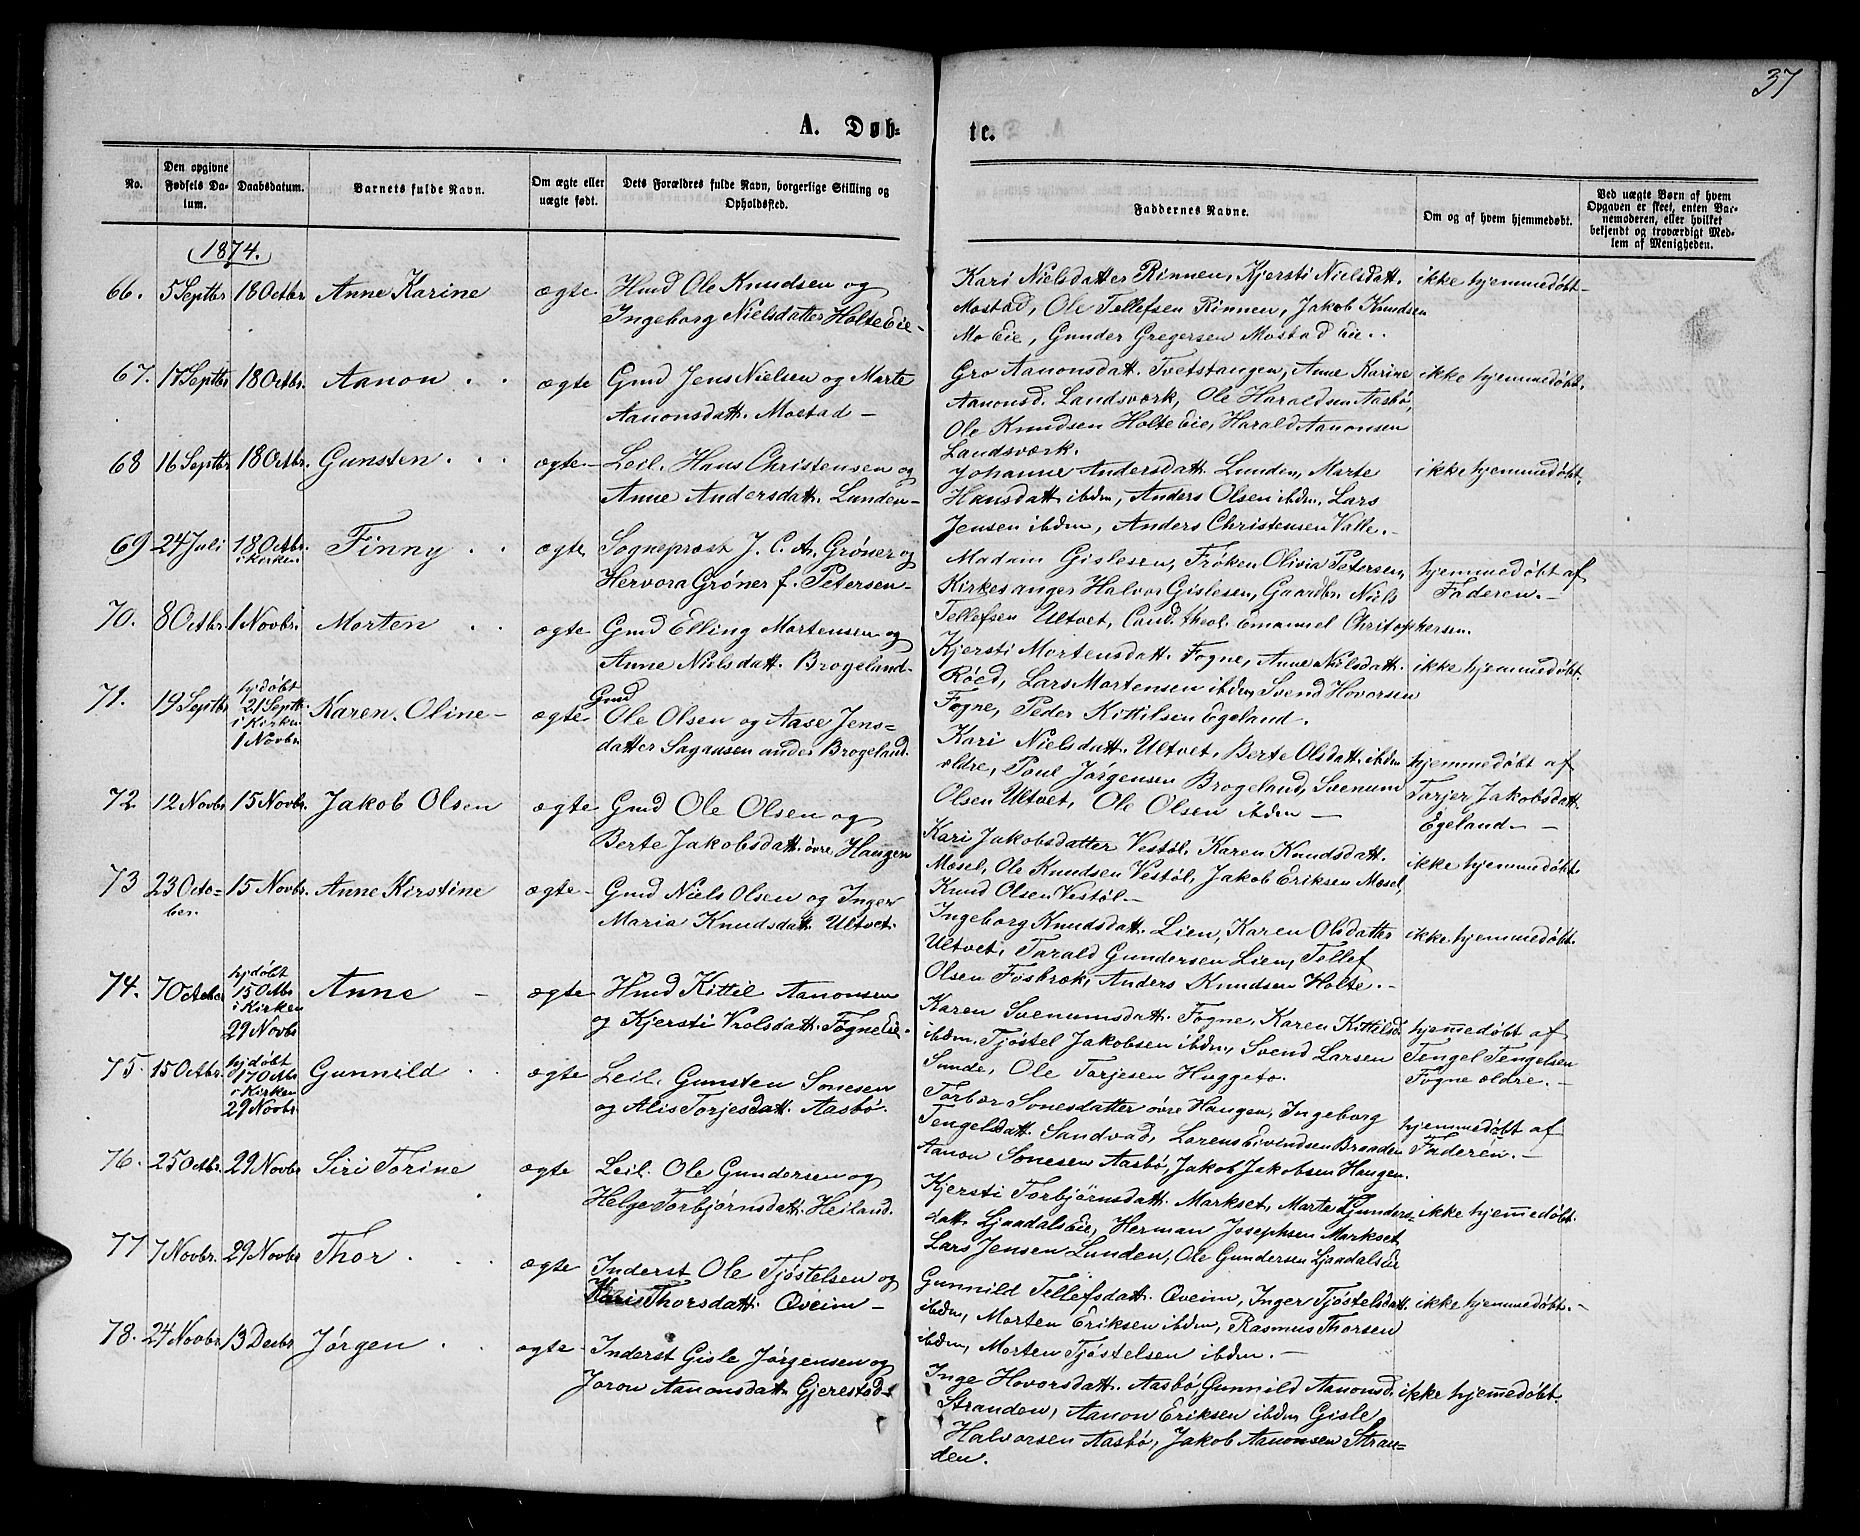 37
A. Døb-
te.
No.
Den opgivne Fødsels Datum.
Daabsdatum.
Barnets fulde Navn.
Om ægte eller uægte født.
Dets Forældres fulde Navn, borgerlige Stilling og Opholdssted.
Faddernes Navne.
Om og af hvem hjemmedøbt.
Ved uægte Børn af hvem Opgaven er skeet, enten Barnemoderen, eller hvilket bekjendt og troværdigt Medlem af Menigheden.
1874.
66. 5 Septbr 18 Octbr Anne Karine ægte Hmd Ole Knudsen og
Ingeborg Nielsdatter Holte Eie -
Kari Nielsdatter Rinnen, Kjersti Nielsdatt. ikke hjemmedøbt -
Mostad, Ole Tellefsen Rinnen, Jakob Knudsen
Mo Eie, Gunder Gregersen Mostad Eie.
67. 17 Septbr 18 Octbr. Aanon . . ægte Gmd Jens Nielsen og Marte
Aanonsdatt. Mostad -
Gro Aanonsdatt. Tvetstangen, Anne Karine ikke hjemmedøbt.
Aanonsd. Landsværk, Ole Haraldsen Aasbø,
Ole Knudsen Holte Eie, Harald Aanonsen
Landsværk.
68 16 Septbr 18 Octbr. Gunsten . . . ægte - Leil. Hans Christensen og
Anne Andersdatt. Lunden -
Johanne Andersdatt. Lunden, Marte ikke hjemmedøbt.
Hansdatt. ibdm, Anders Olsen ibdm, Lars
Jensen ibdm, Anders Christensen Valle. -
69 24 Juli 18 Octbr. i Kirken Finny . . ægte Sogneprest J. C. A. Grøner og
Hervora Grøner f. Petersen -
Madam Gislesen, Frøken Olivia Petersen, hjemmedøbt af
Kirkesanger Halvor Gislesen, Gaardbr. Niels Faderen. -
Tellefsen Ultvet, Cand. theol. Emanuel Christophersen.
70. 8 Octbr. 1 Novbr. Morten . . ægte Gmd Elling Mortensen og
Anne Nielsdatt. Brogeland -
Kjersti Mortensdatt. Fogne, Anne Nielsdatt. ikke hjemmedøbt
Røed, Lars Mortensen ibdm, Svend Hovorsen
Fogne, Peder Kittilsen Egeland.
71. 19 Septbr hjdøbt 21 Septb. i Kirken 1 Novbr. Karen Oline - ægte Gmd
Ole Olsen og Aase Jens-
datter Sagaasen under Brogeland.
Kari Nielsdatt. Ultvet, Berte Olsdatt. ibdm hjemmedøbt af
ældre, Poul Jørgensen Brogeland, Svenum Tarjer Jakobsdatt.
Olsen Ultvet, Ole Olsen ibdm - Egeland -
72. 12 Novbr. 15 Novbr. Jakob Olsen ægte Gmd Ole Olsen og
Berte Jakobsdatt. øvre Haugen
Kari Jakobsdatter Vestøl, Karen Knudsdatt. ikke hjemmedøbt.
Mosel, Ole Knudsen Vestøl, Jakob Eriksen Mosel,
Knud Olsen Vestøl -
73 23 Octo-ber. 15 Novbr. Anne Kirstine ægte - Gmd Niels Olsen og Inger
Maria Knudsdatt. Ultvet.
Ingeborg Knudsdatt. Lien, Karen Olsdatter ikke hjemmedøbt.
Ultvet, Tarald Gundersen Lien, Tellef
Olsen Fosbræk, Anders Knudsen Holte. -
74. 7 October hjdøbt 15 Octbr i Kirken 29 Novbr Anne - ægte Hmd Kittil Aanonsen
og Kjersti Vrolsdatt. Fogne Eie.
Karen Svenumsdatt. Fogne, Karen Kittilsd. hjemmedøbt af
ibdm, Tjøstel Jakobsen ibdm, Svend Larsen Tengel Tengelsen
Sunde, Ole Tarjesen Huggeto. Fogne ældre. -
75. 15 Octbr. hjdøbt 17 Octbr i Kirken 29 Novbr. Gunnild . . ægte Leil. Gunsten Sonesen
og Alis Torjesdatt. Aasbø.
Torbor Sonesdatter øvre Haugen, Ingeborg hjemmedøbt af
Tengelsdatt. Sandvad, Lorens Eivindsen Braaden Faderen. -
Aanon Sonesen Aasbø, Jakob Jakobsen Haugen.
76. 25 Octbr. 29 Novbr Siri Torine ægte Leil. Ole Gundersen og
Helge Torbjørnsdatt. Heiland.
Kjersti Torbjørnsdatt. Markset, Marte Gunders- ikke hjemmedøbt.
datt. Ljaadals Eie, Herman Josephsen Markset,
Lars Jensen Lunden, Ole Gundersen Ljaadals Eie
77 7 Novbr. 29 Novbr Thor . . . ægte Inderst Ole Tjøstelsen og
Kari Thorsdatt. Qveim -
Gunnild Tellefsdatt. Qveim, Inger Tjøstelsdatt. ikke hjemmedøbt. -
ibdm, Morten Eriksen ibdm, Rasmus Thorsen
ibdm, Morten Tjøstelsen ibdm. -
78. 24 Novbr. 13 Decbr Jørgen . . ægte Inderst Gisle Jørgensen og
Joron Aanonsdatt. Gjerestad -
Inge Hovorsdatt. Aasbø, Gunnild Aanonsd. ikke hjemmedøbt.
Stranden, Aanon Eriksen ibdm, Gisle
Halvorsen Aasbø, Jakob Aanonsen Stran-
den.